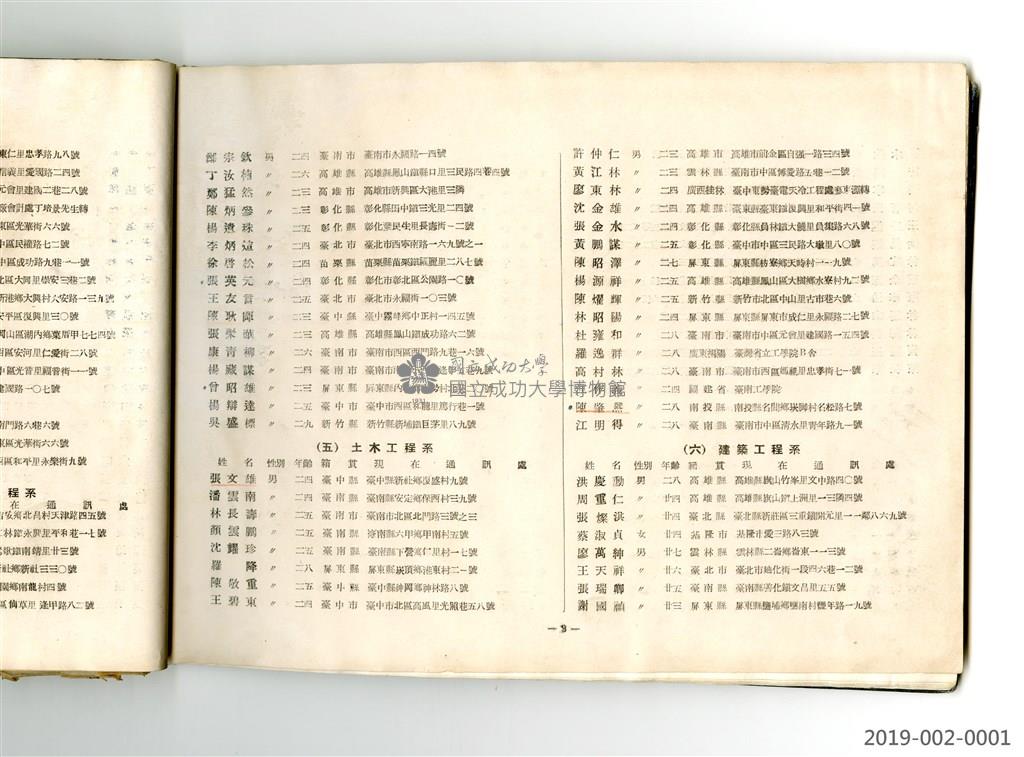 東仁里忠孝路九八號
信義里愛國路二四號
元會里建國二巷二八號
廠會計處丁培景先生轉
東區光華街六六號
中區民權路七二號
中區成功路九巷一一號
北區大興里崇安三巷二號
新港鄉大興村六安路一三九號
安平區復興里三〇號
西區安河里仁愛街二八號
北區光音里國審街一一號
建國路一〇七號
南門路六巷六號
東區光華街六六號
西區和平里永樂街九號
程系
在 通 訊 處
吉安鄉北昌村天津路四五號
二林鎮永興里平和巷一七號
新社鄉新社三三〇號
園鄉南龍村四號
區僑草里逢甲路八二號
鄭宗欽 男 二四 臺南市 臺南市永國路一四號
丁汝楠 〃 二六 高雄縣 高雄縣鳳山鎮縣口里三民路四巷四號
鄭猛然 〃 二三 高雄市 高雄市新興區大港里三鄰
陳炳參 〃 二三 彰化縣 彰化縣田中鎮三光里二四號
楊遺珠 〃 二五 彰化縣 彰化業民生里長壽街一二號
李炳煊 〃 二四 臺北市 臺北市西寧南路一六九號之一
徐啓松 〃 二四 苗栗縣 苗栗縣苗栗鎮區麗里二八七號
張英元 〃 二四 彰化縣 彰化市彰化北區公園路一〇號
王友言 〃 二五 臺北市 臺北市永國街一〇三號
陳耿卿 〃 二三 臺中縣 臺中霧峰鄉中正村一四五號
張榮華 〃 二三 高雄縣 高雄縣鳳山鎮成功路六二號
康青柳 〃 二六 臺南市 臺南市西區西門路九巷一六號
楊崴謀 〃 二四 臺南市
曾昭雄 〃 二三 屏東縣
楊辯達 〃 二五 臺中市 臺中市西區和龍里篤行巷一號
吳盛標 〃 二九 新竹縣 新竹縣新埔鎮巨茅里八九號
(五) 土木工程系
姓 名 性別 年齡 籍 貫 現 在 通 訊 處
張文雄 男 二四 臺中縣 臺中縣新社鄉復盛村九號
潘雲南 〃 二四 臺南縣 臺南縣安定鄉保西村三九號
林長壽 〃 二五 臺南市 臺南市北區北門路三號之三
顏雲鵬 〃 二五 臺南縣 臺南縣六甲鄉甲南村五號
沈耀珍 〃 二五 臺南縣 臺南縣下營鄉仁里村一七號
羅 降 〃 二八 屏東縣 屏東縣崁頂鄉港東村二一號
陳啟重 〃 二五 臺中縣 臺中縣神岡鄉神林路八號
王碧東 〃 二四 臺中市 臺中市北區高風里光顯巷五八號
許仲仁 男 二三 高雄市 高雄市前金區自强一路三四號
黃江林 〃 二三 雲林縣 臺南市中區博愛路五巷一二號
廖東林 〃 二四 廣西桂林 臺中東勢臺電天冷工程處廖東源轉
沈金雄 〃 二四 臺東縣 臺東縣臺東鎮復興里和平街四一號
張金水 〃 二四 彰化縣 彰化縣員林鎮大饒里員集路六八號
黃鵬謀 〃 二五 彰化縣 臺中市中區三民路大墩里八〇號
陳昭澤 〃 二七 屏東縣 屏東縣枋寮鄉天時村一一九號
楊源祥 〃 二五 高雄縣 高雄縣鳳山區大樹鄉水寮村九二號
陳燿輝 〃 二五 新竹縣 新竹市北區中山里古市巷六號
林昭陽 〃 二四 屏東縣 屏東縣屏東市成仁里永國路二七號
杜薙和 〃 二八 臺南市 臺南市中區元會里建國路一五四號
羅逸群 〃 二八 廣東揭陽 臺灣省立工學院B舍
高村林 〃 二八 臺南市 臺南市西區媽祖里忠孝街七一號
二四 福建省 臺南工學院
陳肇熙 〃 二八 南投縣 南投縣名間鄉崁脚村名松路七號
江明得 〃 二八 臺南縣 臺南市中區清水里青年路九一號
(六) 建築工程系
姓 名 性別 年齡 籍 貫 現 在 通 訊 處
洪慶勳 男 二八 高雄縣 高雄縣旗山竹峯里文中路四〇號
周重仁 〃 廿四 高雄縣 高雄縣旗山鎮上洲里一三鄰四號
張燦洪 〃 廿四 臺北縣 臺北縣新莊區三重鎮開元里一一鄰八六九號
蔡淑貞 女 廿四 基隆市 基隆市愛三路八三號
廖萬紳 男 廿七 雲林縣 雲林縣二崙鄉崙東一一三號
王天祥 〃 廿六 臺北市 臺北市迪化街一段四六巷一二號
張瑞卿 〃 廿五 臺南縣 臺南縣善化鎮文昌里五五號
謝國禎 〃 廿三 屏東縣 屏東縣鹽埔鄉鹽南村豐年路一九號
—3—
1931
國立成功大學
國立成功大學博物館
2019-002-0001